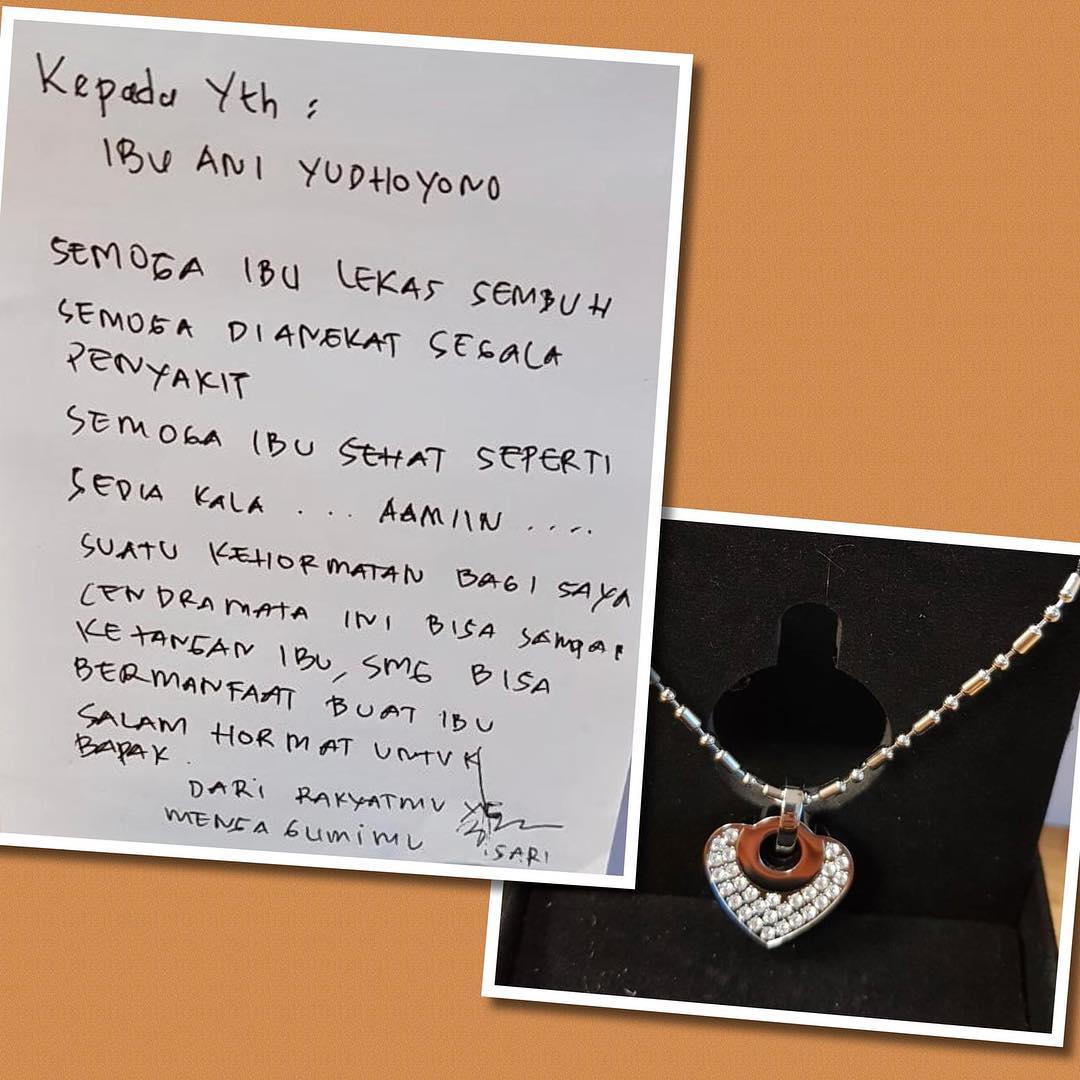 Kepada Yth :
IBU ANI YUDHOYONO
SEMOGA IBU LEKAS SEMBUH
SEMOGA DIANGKAT SEGALA
PENYAKIT
SEMOGA IBU SEHAT SEPERTI
SEDIA KALA ... AAMIIN ....
SUATU KEHORMATAN BAGI SAYA
CENDRAMATA INI BISA SAMPAI
KETANGAN IBU, SMG BISA
BERMANFAAT BUAT IBU
SALAM HORMAT UNTUK
BAPAK.
DARI RAKYATMU YG
MENGAGUMIMU
SARI